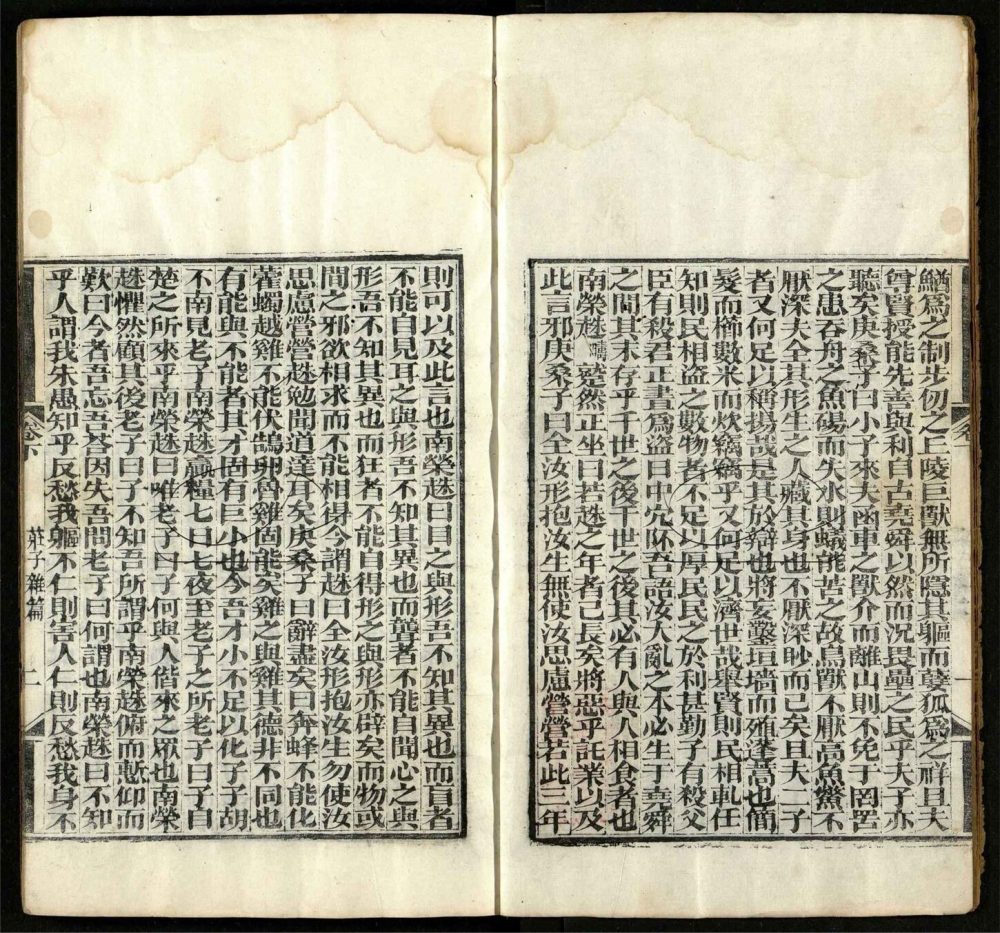 鰌爲之制步仞之丘陵巨獸無所隱其軀而孽狐爲之祥且夫
尊賢授能先善與利自古堯舜以然而況畏壘之民乎夫子亦
聽矣庚桑子曰小子來夫函車之獸介而離山則不免于罔罟
之患吞舟之魚碭而失水則蟻能苦之故鳥獸不厭高魚鱉不
厭深夫全其形生之人藏其身也不厭深眇而已矣且夫二子
者又何足以稱揚哉是其於辯也將妄鑿垣墻而殖蓬蒿也簡
髮而櫛數米而炊竊竊乎又何足以濟世哉舉賢則民相軋任
知則民相盜之數物者不足以厚民民之於利甚勤子有殺父
臣有殺君正晝爲盜日中穴阫吾語汝大亂之本必生于堯舜
之間其末存乎千世之後千世之後其必有人與人相食者也
南榮趎蹵然正坐曰若趎之年者已長矣將惡乎託業以及
此言邪庚桑子曰全汝形抱汝生無使汝思慮營營若此三年
則可以及此言也南榮趎曰目之與形吾不知其異也而盲者
不能自見耳之與形吾不知其異也而聾者不能自聞心之與
形吾不知其異也而狂者不能自得形之與形亦辟矣而物或
間之邪欲相求而不能相得今謂趎曰全汝形抱汝生勿使汝
思慮營營趎勉聞道達耳矣庚桑子曰辭盡矣曰奔蜂不能化
藿蠋越雞不能伏鵠卵魯雞固能矣雞之與雞其德非不同也
有能與不能者其才固有巨小也今吾才小不足以化子子胡
不南見老子南榮趎贏糧七日七夜至老子之所老子曰子自
楚之所來乎南榮趎曰唯老子曰子何與人偕來之眾也南榮
趎懼然顧其後老子曰子不知吾所謂乎南榮趎俯而慙仰而
歎曰今者吾忘吾答因失吾問老子曰何謂也南榮趎曰不知
乎人謂我朱愚知乎反愁我軀不仁則害人仁則反愁我身不
卷下
莊子雜篇
二